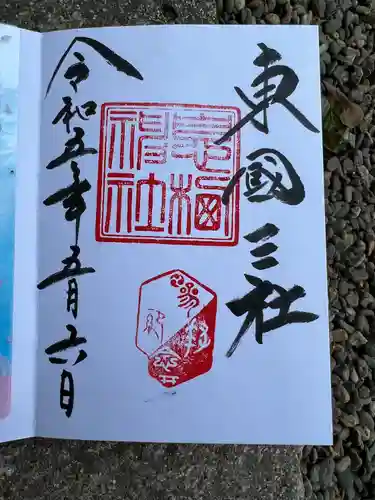 東國三社
息栖神社
令和五年五月六日